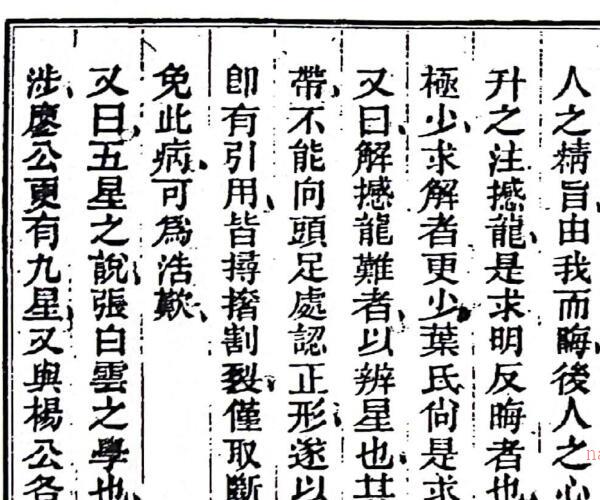 人之精旨由我而晦後人之心
升之注撼龍是求明反晦者也
極少求解者更少葉氏尙是求
又曰解撼龍難者以辨星也其
帶不能向頭足處認正形遂以
卽有引用皆撏撦割裂僅取斷
免此病可爲浩歎
又曰五星之說張白雲之學也
涉廖公更有九星又與楊公各